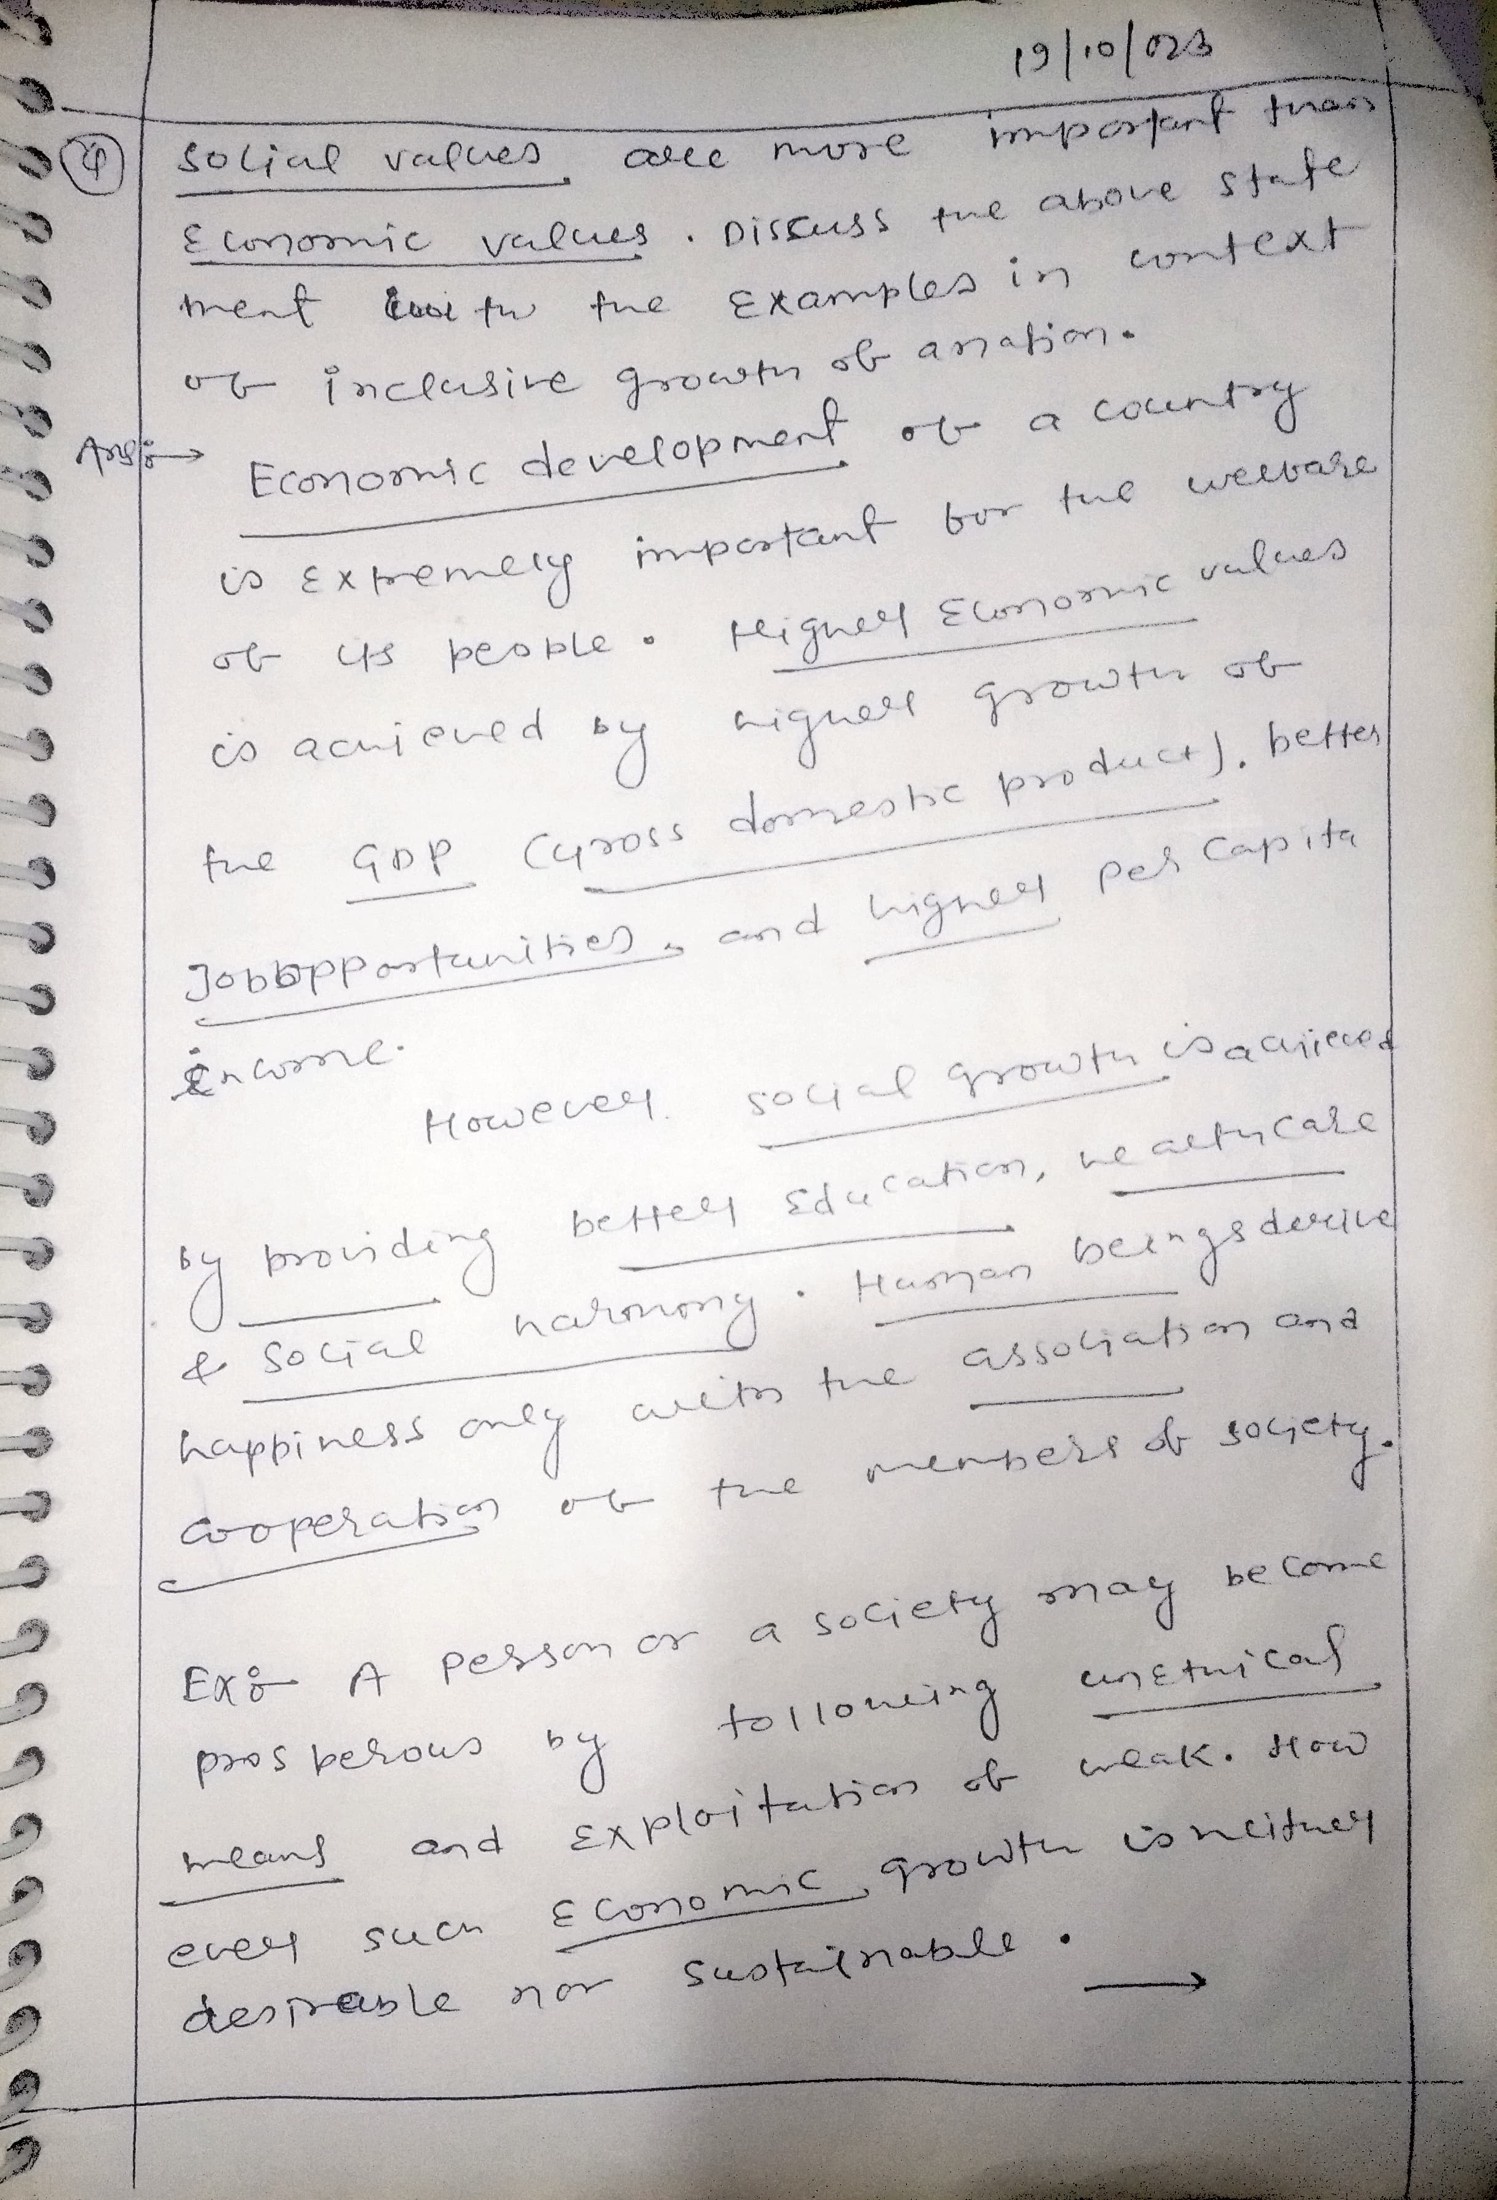 19/10/023
④ Social values are more important than
Economic values. Discuss the above state
ment with the Examples in context
of inclusive growth of a nation.
Ans:→ Economic development of a country
is Extremely important for the welfare
of its people. Higher Economic values
is achieved by higher growth of
the GDP (Gross domestic product), better
Job opportunities, and higher per Capita
income.
However social growth is achieved
by providing better Education, healthcare
& social harmony. Human beings derive
happiness only with the association and
cooperation of the members of society.
Ex: A person or a society may become
prosperous by following unethical
means and Exploitation of weak. How
ever such Economic growth is neither
desirable nor sustainable. →